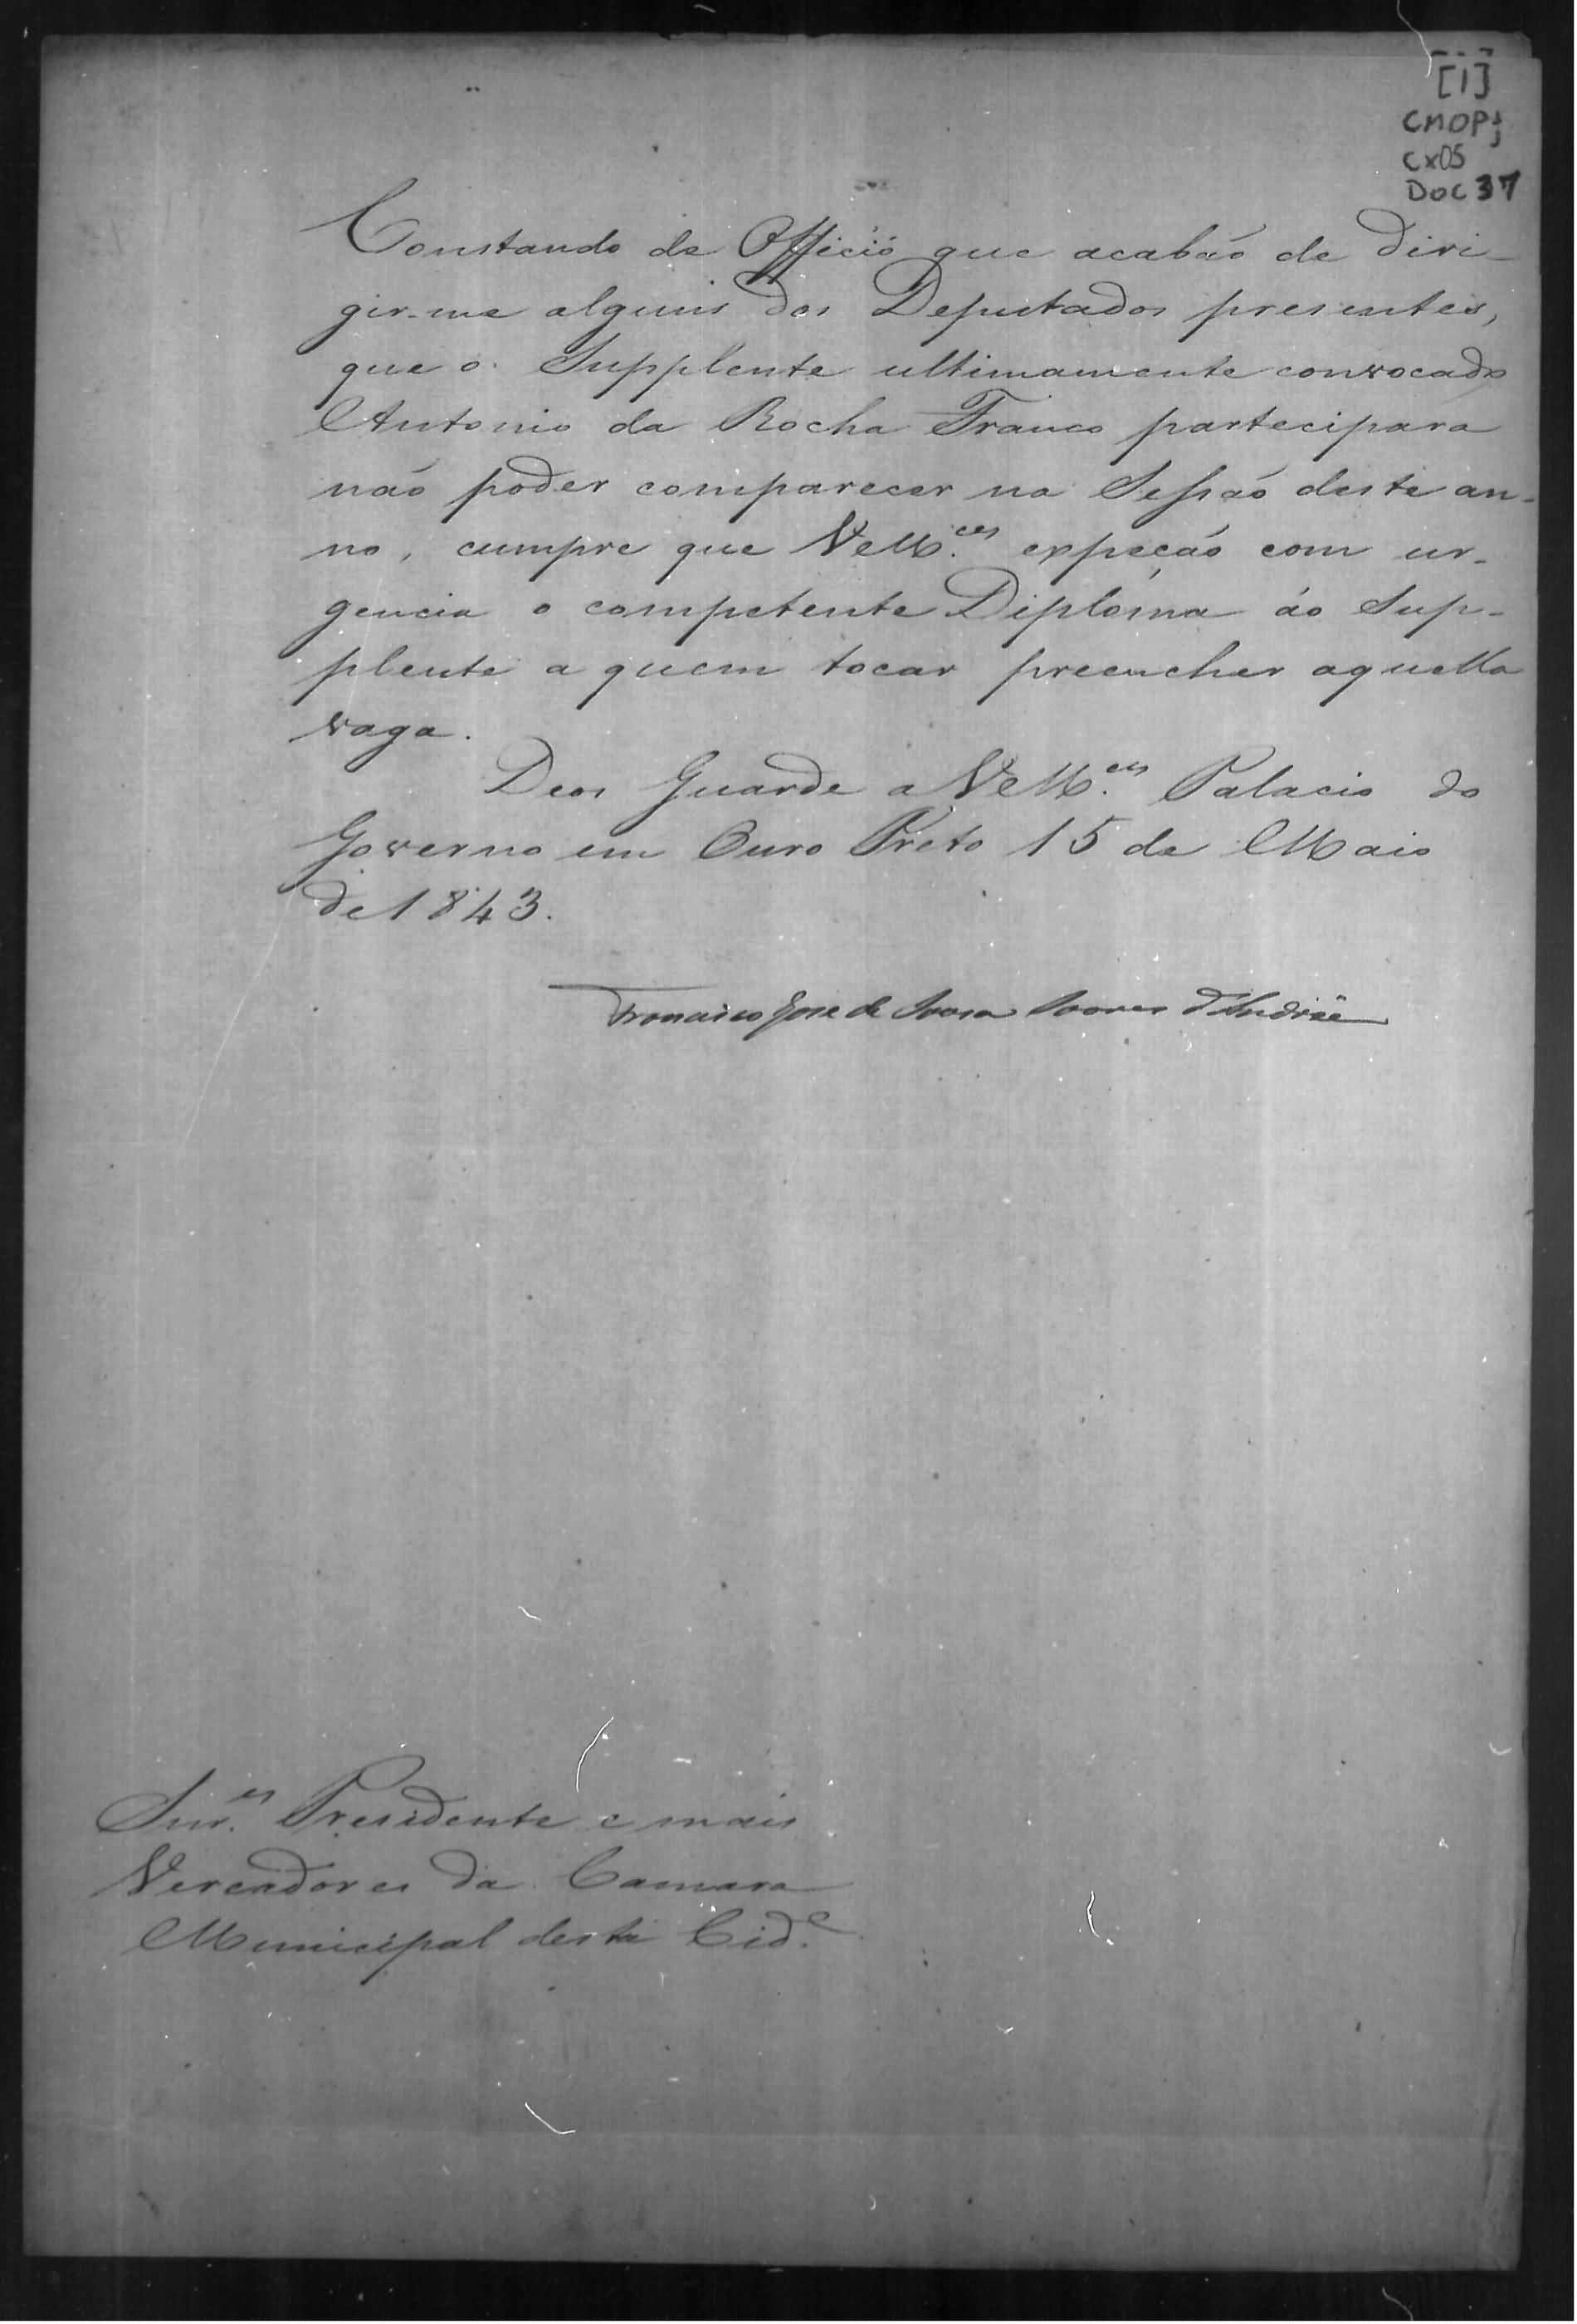 [1]
CMOP;
CX05
DOC 37
Constando de Officio que acabáo de diri-
gir-me alguns dos Deputados presentes,
que o Supplente ultimamente convocado
Antonio da Rocha Franco partecipara
náo poder comparecer na Sessáo deste an-
no, cumpre que VeM.ces expeçáo com ur-
gencia o competente Diplóma áo Sup-
plente a quem tocar preencher aquella
vaga.
Deos Guarde a VeM.ces Palacio do
Governo em Ouro Preto 15 de Maio
de 1843.
Francisco José de Sousa Soares d'Andréa
Snr.es Presidente e mais
Vereadores da Camara
Municipal desta Cid.e